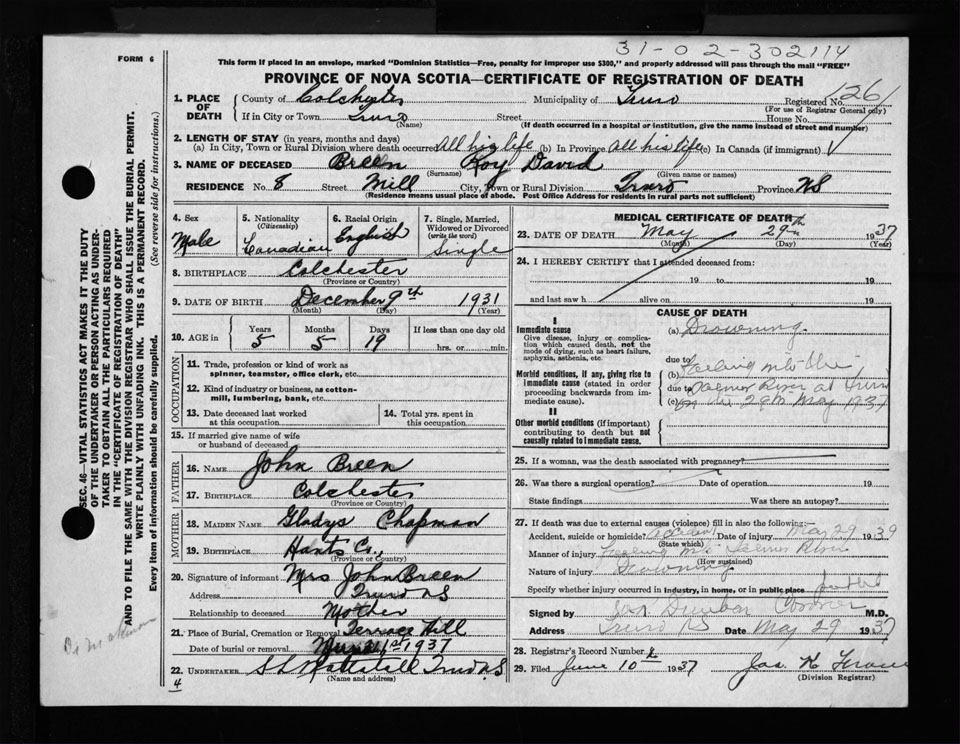 31-02-302114
FORM 6
This form if placed in an envelope, marked "Dominion Statistics—Free, penalty for improper use $300," and properly addressed will pass through the mail "FREE"
PROVINCE OF NOVA SCOTIA—CERTIFICATE OF REGISTRATION OF DEATH
1. PLACE OF DEATH County of Colchester Municipality of Truro Registered No. 1261
(For use of Registrar General only)
If in City or Town Truro Street House No.
(Name) (If death occurred in a hospital or institution, give the name instead of street and number)
2. LENGTH OF STAY (in years, months and days)
(a) In City, Town or Rural Division where death occurred All his life (b) In Province All his life (c) In Canada (if immigrant)
3. NAME OF DECEASED Breen Roy David
(Surname) (Given name or names)
RESIDENCE No. 8 Street Mill City, Town or Rural Division Truro Province NS
(Residence means usual place of abode. Post Office Address for residents in rural parts not sufficient)
4. Sex 5. Nationality (Citizenship) 6. Racial Origin 7. Single, Married, Widowed or Divorced (write the word)
Male Canadian English Single
8. BIRTHPLACE Colchester
(Province or County)
9. DATE OF BIRTH December 9th 1931
(Month) (Day) (Year)
10. AGE in Years Months Days If less than one day old
5 5 19 hrs. or min.
OCCUPATION
11. Trade, profession or kind of work as spinner, teamster, office clerk, etc.
12. Kind of industry or business, as cotton-mill, lumbering, bank, etc.
13. Date deceased last worked at this occupation 14. Total yrs. spent in this occupation
15. If married give name of wife or husband of deceased
FATHER
16. NAME John Breen
17. BIRTHPLACE Colchester
(Province or County)
MOTHER
18. MAIDEN NAME Gladys Chapman
19. BIRTHPLACE Hants Co.
(Province or Country)
20. Signature of informant Mrs John Breen
Address Truro NS
Relationship to deceased Mother
21. Place of Burial, Cremation or Removal Terrace Hill
Date of burial or removal 1st 1937
22. UNDERTAKER Truro NS
(Name and address)
4
MEDICAL CERTIFICATE OF DEATH
23. DATE OF DEATH May 29th 1937
(Month) (Day) (Year)
24. I HEREBY CERTIFY that I attended deceased from:
19 to 19
and last saw h alive on 19
CAUSE OF DEATH
I
Immediate cause
Give disease, injury or complication which caused death, not the mode of dying, such as heart failure, asphyxia, asthenia, etc.
(a) Drowning
due to
Morbid conditions, if any, giving rise to immediate cause (stated in order proceeding backwards from immediate cause).
(b) into the
due to
(c) River at Truro
on the 29th May 1937
II
Other morbid conditions (if important) contributing to death but not causally related to immediate cause.
25. If a woman, was the death associated with pregnancy?
26. Was there a surgical operation? Date of operation 19
State findings Was there an autopsy?
27. If death was due to external causes (violence) fill in also the following:—
Accident, suicide or homicide? Accident Date of injury May 29 1939
(State which)
Manner of injury River
(How sustained)
Nature of injury Drowning
Specify whether injury occurred in industry, in home, or in public place
Signed by Dunbar Coroner M.D.
Address Truro NS Date May 29 1937
28. Registrar's Record Number
29. Filed June 10 1937 Jas.
(Division Registrar)
SEC. 46—VITAL STATISTICS ACT MAKES IT THE DUTY OF THE UNDERTAKER OR PERSON ACTING AS UNDERTAKER TO OBTAIN ALL THE PARTICULARS REQUIRED IN THE "CERTIFICATE OF REGISTRATION OF DEATH"
AND TO FILE THE SAME WITH THE DIVISION REGISTRAR WHO SHALL ISSUE THE BURIAL PERMIT.
WRITE PLAINLY WITH UNFADING INK. THIS IS A PERMANENT RECORD.
Every item of information should be carefully supplied. (See reverse side for instructions.)